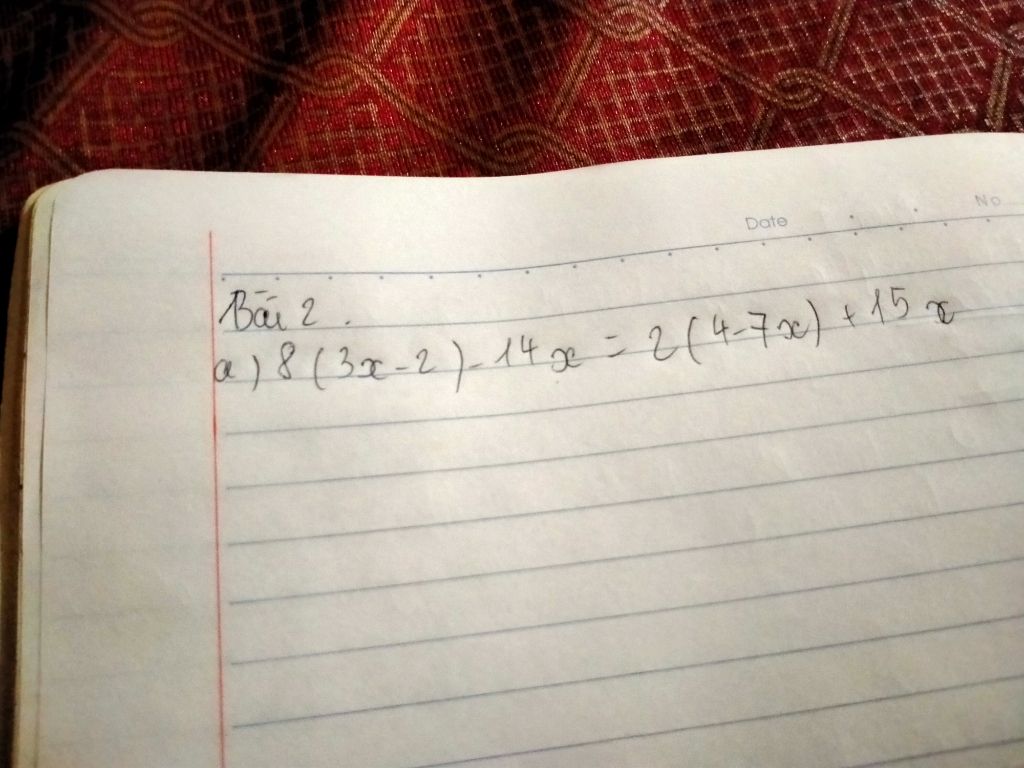 Date No
Bài 2.
a) 8(3x-2)-14x = 2(4-7x) + 15x